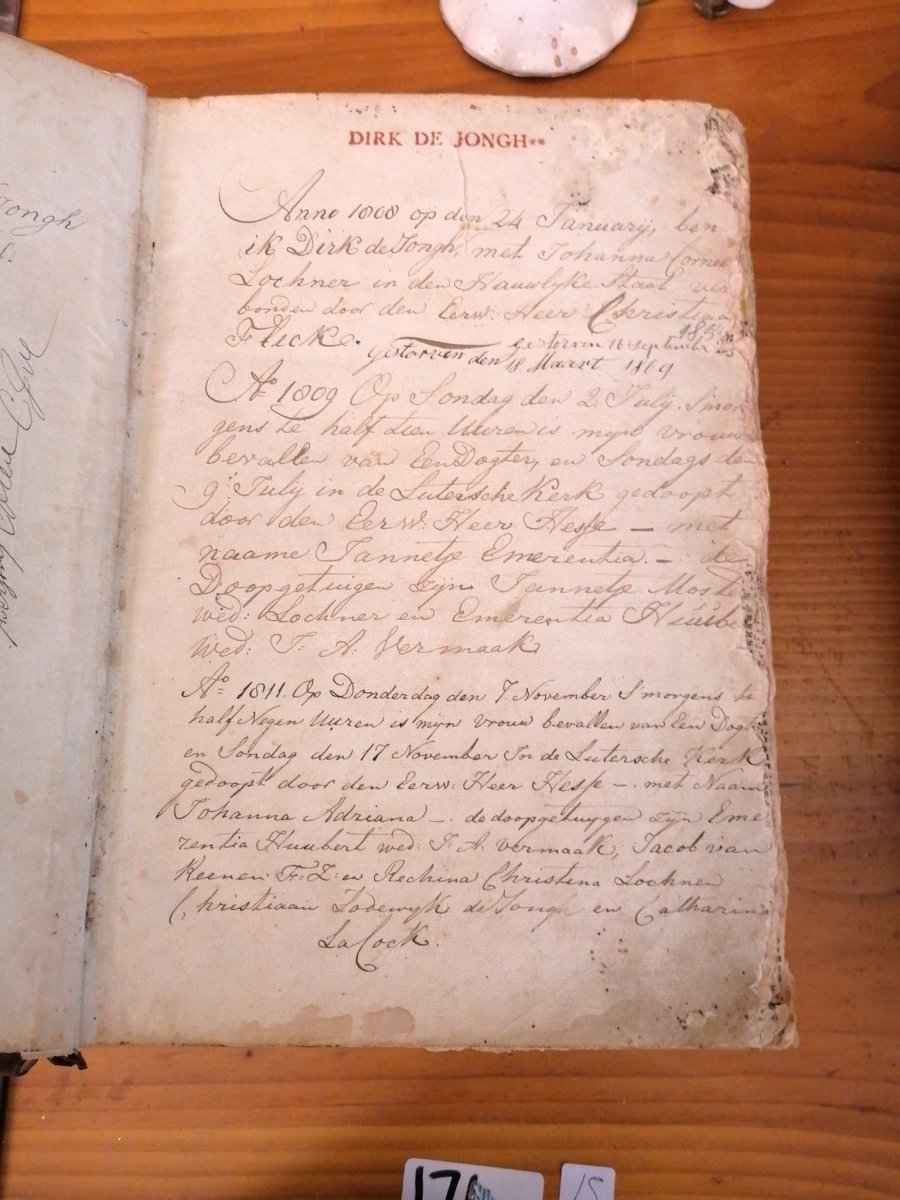 DIRK DE JONGH**
Anno 1808 op den 24 Januarij, ben
ik Dirk de Jongh, met Johanna Corne
Lochner in den Hauwlyke Staat ver
bonden door den Eerw: Heer Christiaa
Flecke.
gestorven 16 September
gestorven den 18 Maart 1869
Ao 1809 Op Sondag den 2 July. Smor
gens te half tien Uuren is mijn vrouw
bevallen van Een Dogter, en Sondags de
9 July in de Lutersche Kerk gedoopt
door den Eerw: Heer Hesse — met
naame Jannetje Emerentia. — de
Doopgetuigen zijn Jannetje Moste
wed: Lochner en Emerentia Huube
wed: J: A: Vermaak
Ao 1811. Op Donderdag den 7 November Smorgens te
half Negen Uuren is mijn vrouw bevallen van Een Dogt
en Sondag den 17 November In de Lutersche Kerk
gedoopt door den Eerw: Heer Hesse —. met Naam
Johanna Adriana —. de doopgetuygen zijn Eme
rentia Huubert wed: J: A: Vermaak, Jacob van
Reenen F: Z: en Rechina Christina Lochner
Christiaan Lodewyk de Jongh en Catharina
La Cock.
Jongh
15